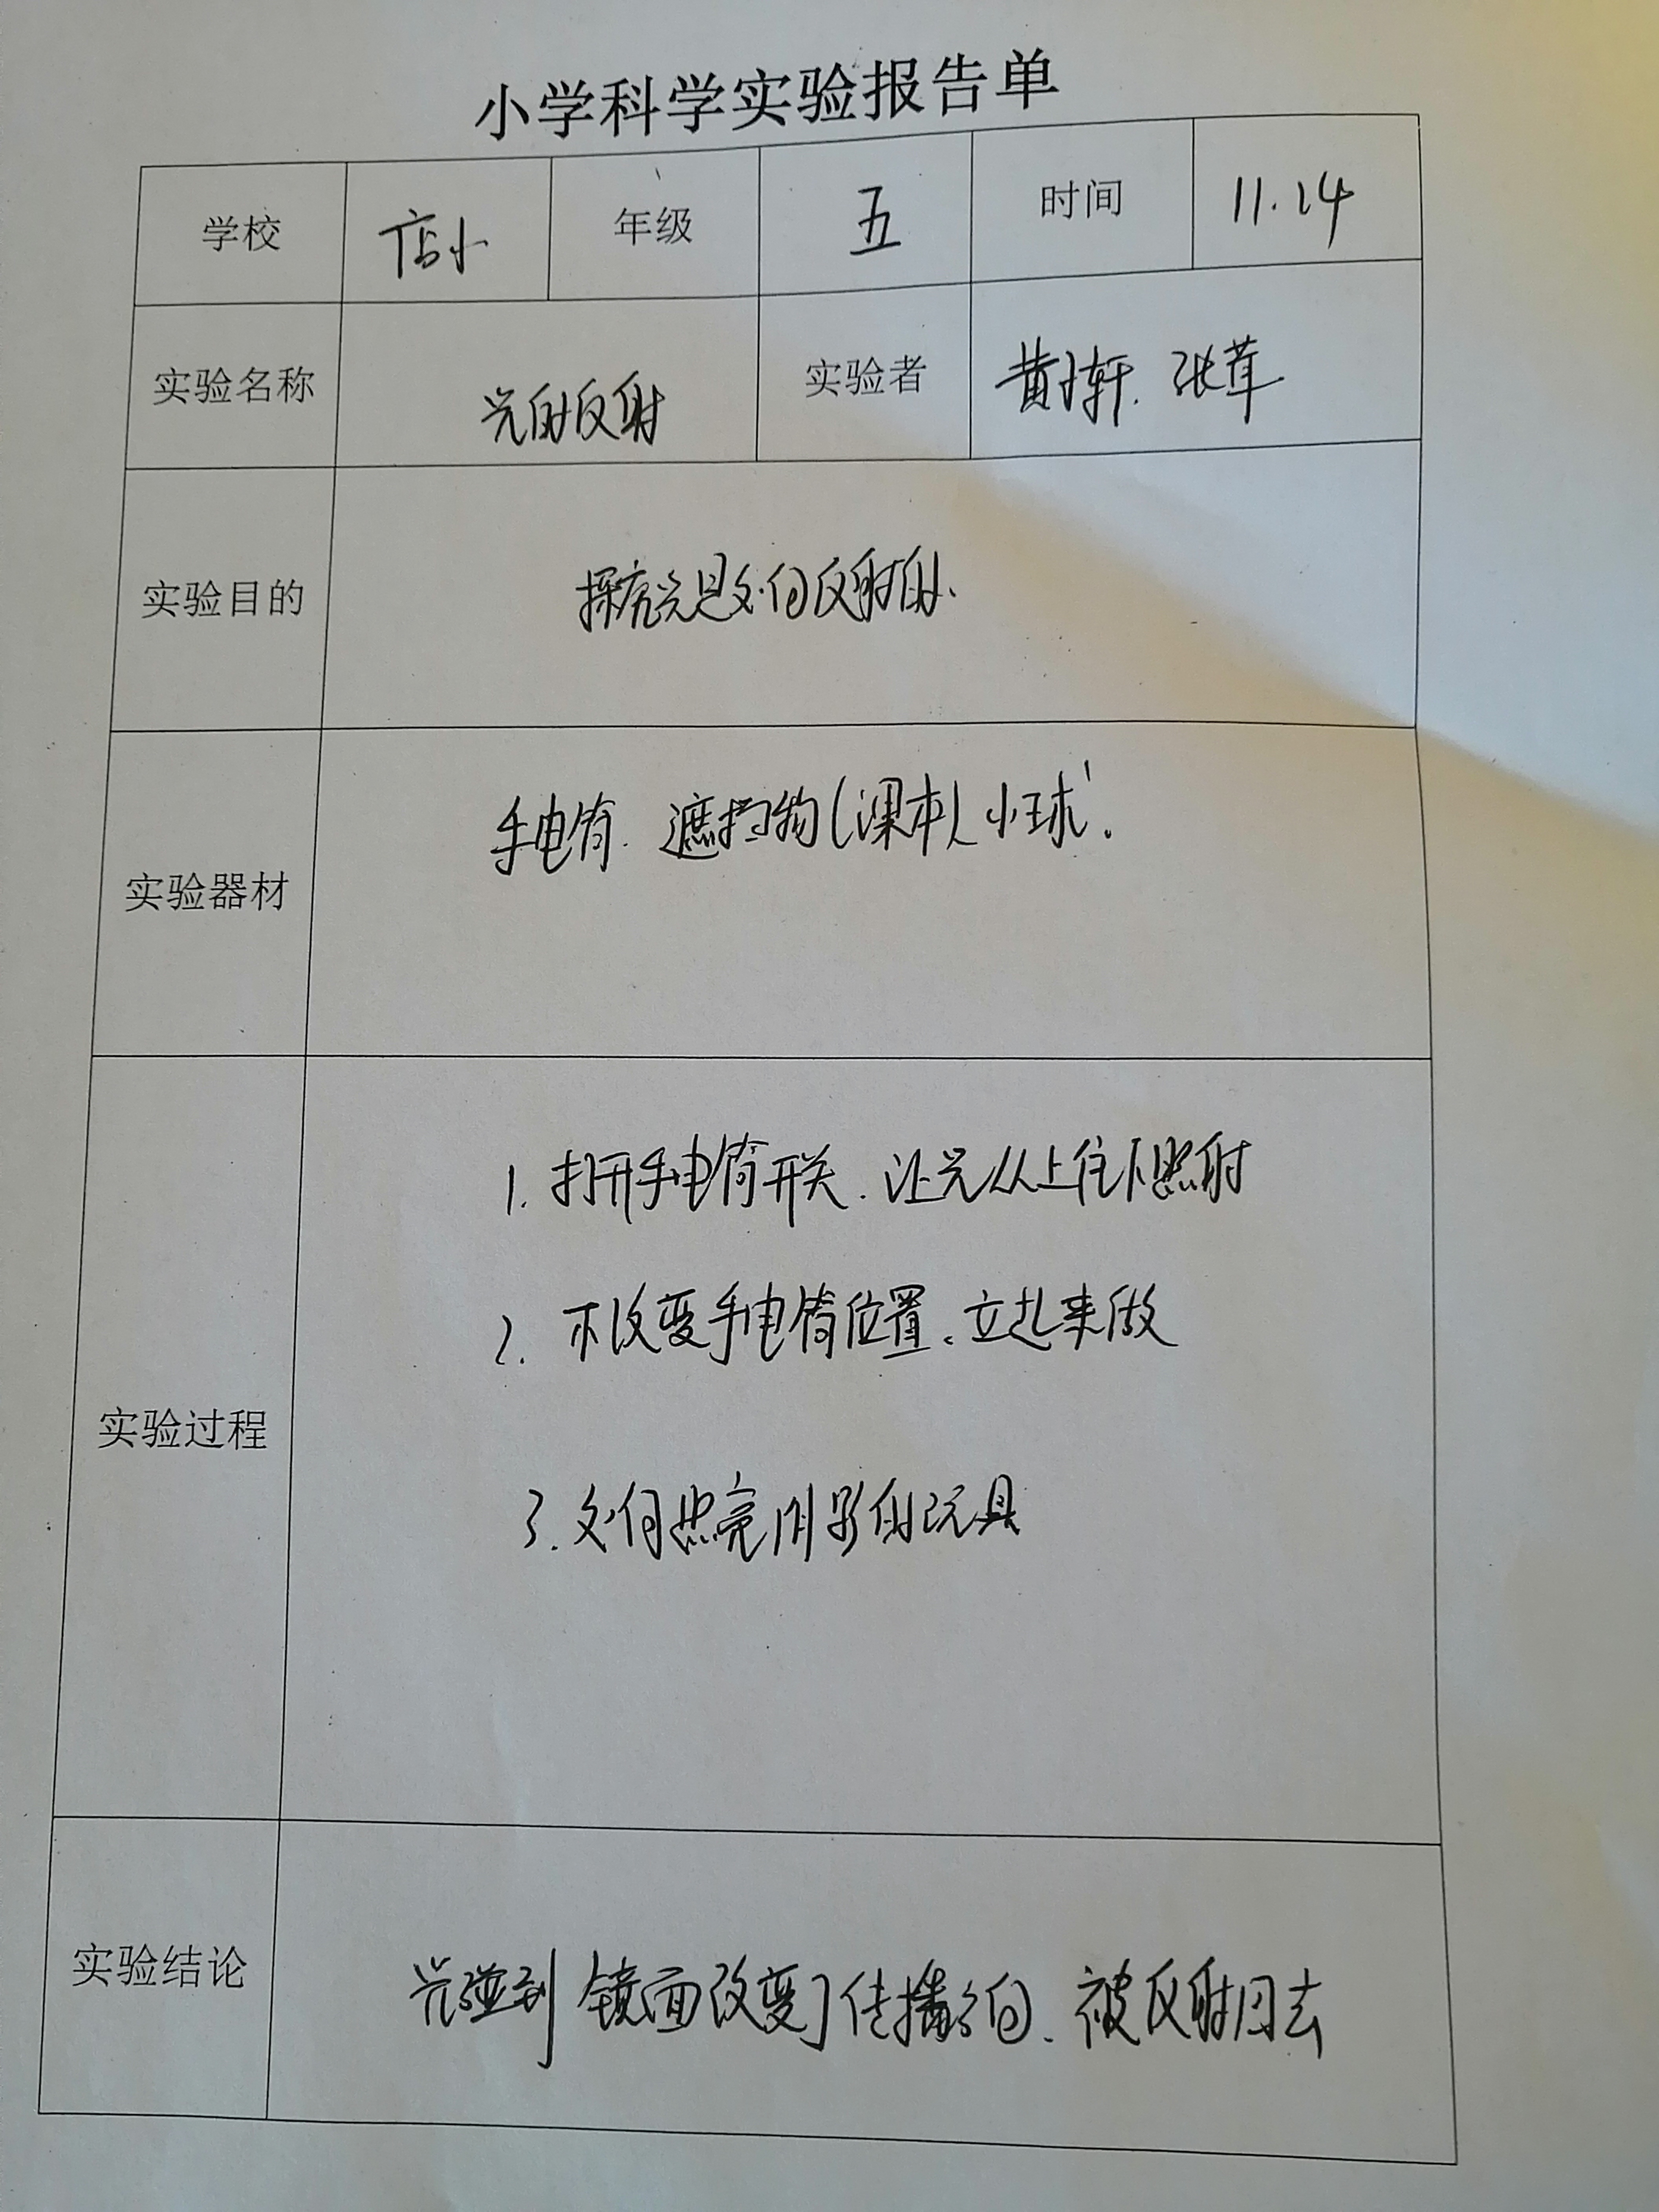 小学科学实验报告单
学校 店小 年级 五 时间 11.14
实验名称 光的反射 实验者 黄子轩. 张茸
实验目的 探究光是如何反射的.
实验器材 手电筒. 遮挡物(课本) 小球.
实验过程
1. 打开手电筒开关. 让光从上往下照射
2. 不改变手电筒位置. 立起来做
3. 如何照亮阴影的玩具
实验结论 光碰到镜面改变了传播方向. 被反射回去